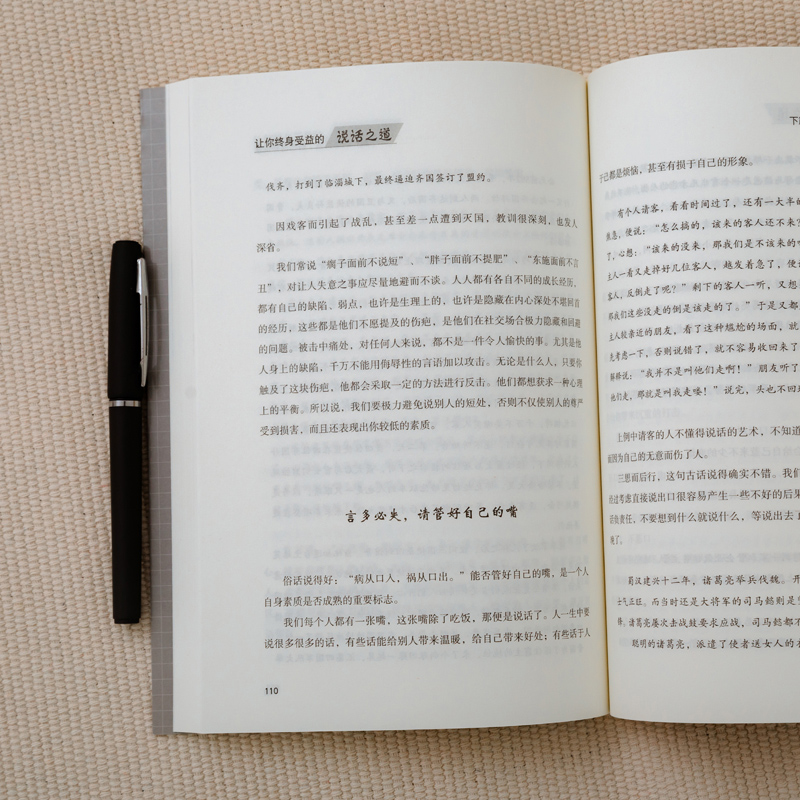 让你终身受益的 说话之道
伐齐，打到了临淄城下，最终逼迫齐国签订了盟约。
因戏客而引起了战乱，甚至差一点遭到灭国，教训很深刻，也发人
深省。
我们常说“瘸子面前不说短”、“胖子面前不提肥”、“东施面前不言
丑”，对让人失意之事应尽量地避而不谈。人人都有各自不同的成长经历，
都有自己的缺陷、弱点，也许是生理上的，也许是隐藏在内心深处不堪回首
的经历，这些都是他们不愿提及的伤疤，是他们在社交场合极力隐藏和回避
的问题。被击中痛处，对任何人来说，都不是一件令人愉快的事。尤其是他
人身上的缺陷，千万不能用侮辱性的言语加以攻击。无论是什么人，只要你
触及了这块伤疤，他都会采取一定的方法进行反击。他们都想获求一种心理
上的平衡。所以说，我们要极力避免说别人的短处，否则不仅使别人的尊严
受到损害，而且还表现出你较低的素质。
言多必失，请管好自己的嘴
俗话说得好：“病从口入，祸从口出。”能否管好自己的嘴，是一个人
自身素质是否成熟的重要标志。
我们每个人都有一张嘴，这张嘴除了吃饭，那便是说话了。人一生中要
说很多很多的话，有些话能给别人带来温暖，给自己带来好处；有些话于人
110
下
于己都是烦恼，甚至有损于自己的形象。
有个人请客，看看时间过了，还有一大半的
焦急，便说：“怎么搞的，该来的客人还不来？
了，心想：“该来的没来，那我们是不该来的
主人一看又走掉好几位客人，越发着急了，便
客人，反倒走了呢？”剩下的客人一听，又想
那我们这些没走的倒是该走的了。”于是又都
主人较亲近的朋友，看了这种尴尬的场面，就
先考虑一下，否则说错了，就不容易收回来了
解释说：“我并不是叫他们走啊！”朋友听了
他们走，那就是叫我走喽！”说完，头也不回
上例中请客的人不懂得说话的艺术，不知道
而因为自己的无意而伤了人。
三思而后行，这句古话说得确实不错。我们
经过考虑直接说出口很容易产生一些不好的后果
话负责任，不要想到什么就说什么，等说出去
晚了。
蜀汉建兴十二年，诸葛亮举兵伐魏。
士气正旺。而当时还是大将军的司马懿则是
锋。诸葛亮屡次击战鼓要求应战，司马懿都不
聪明的诸葛亮，派遣了使者送女人的